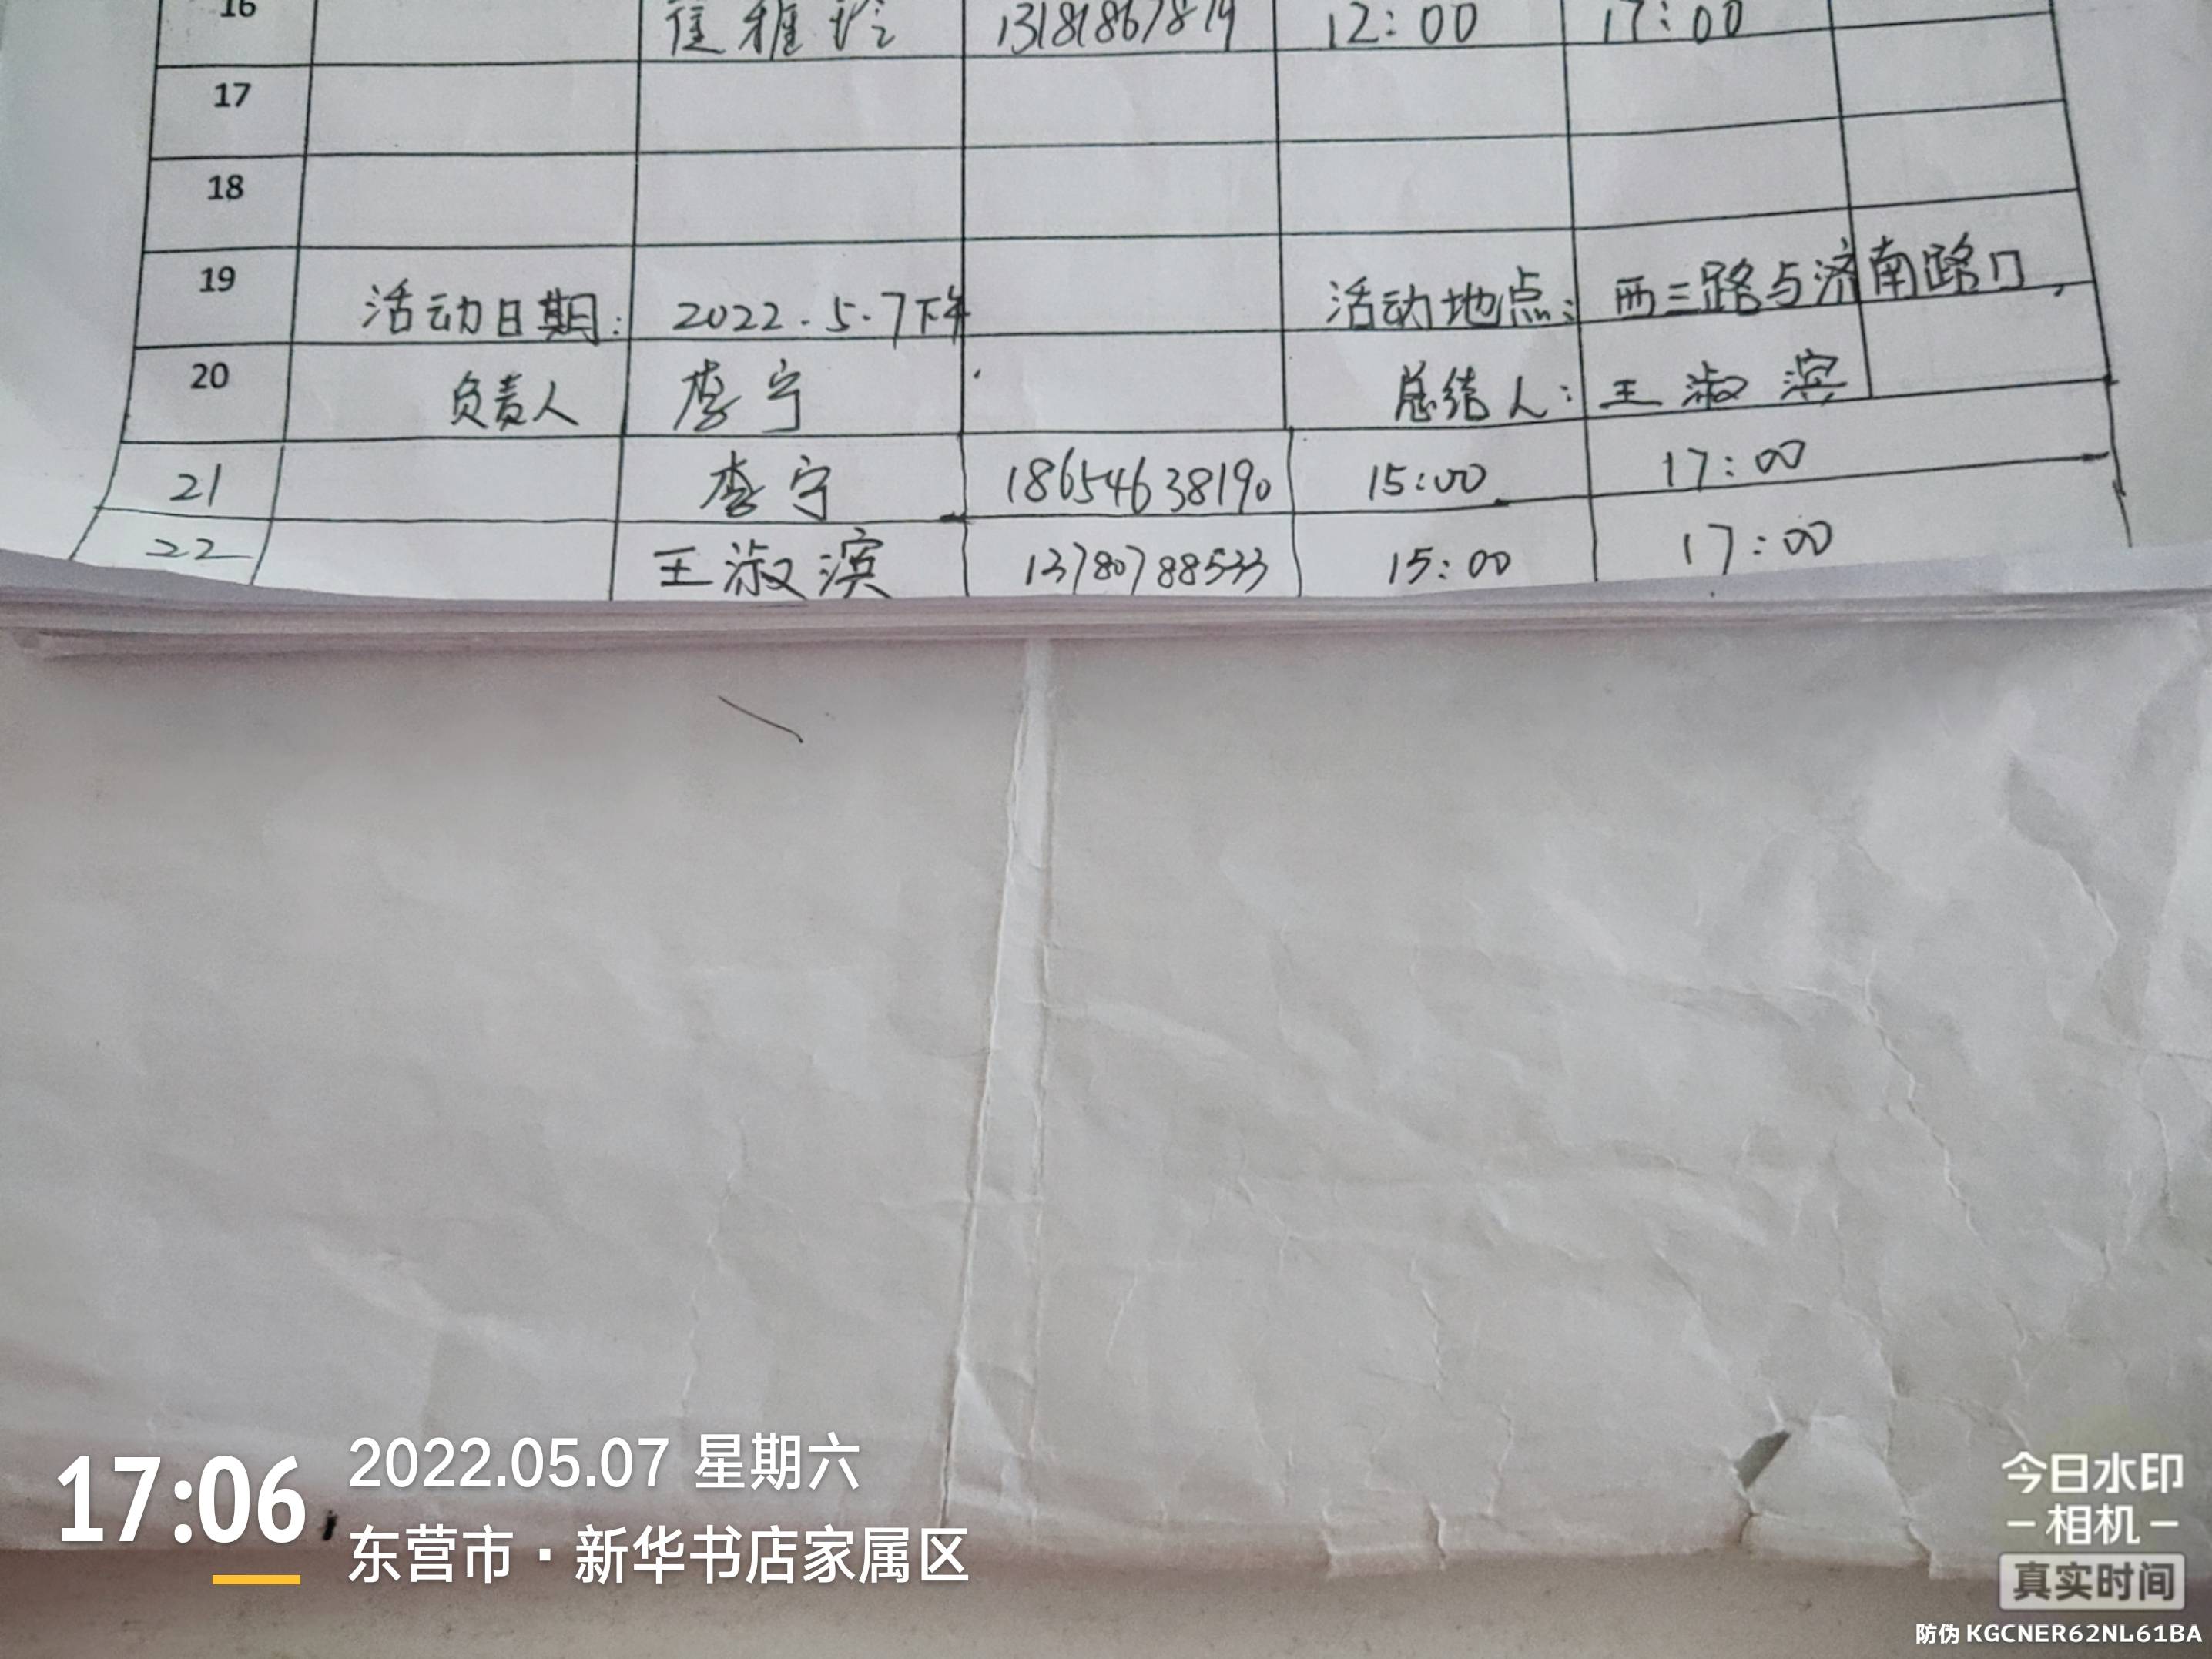 16 崔雅玲 13181867819 12:00 17:00
17
18
19 活动日期: 2022.5.7下午 活动地点: 西三路与济南路口,
20 负责人 李宁 总结人: 王淑滨
21 李宁 18654638190 15:00 17:00
22 王淑滨 13780788533 15:00 17:00
17:06
2022.05.07 星期六
东营市·新华书店家属区
今日水印
相机
真实时间
防伪 KGCNER62NL61BA